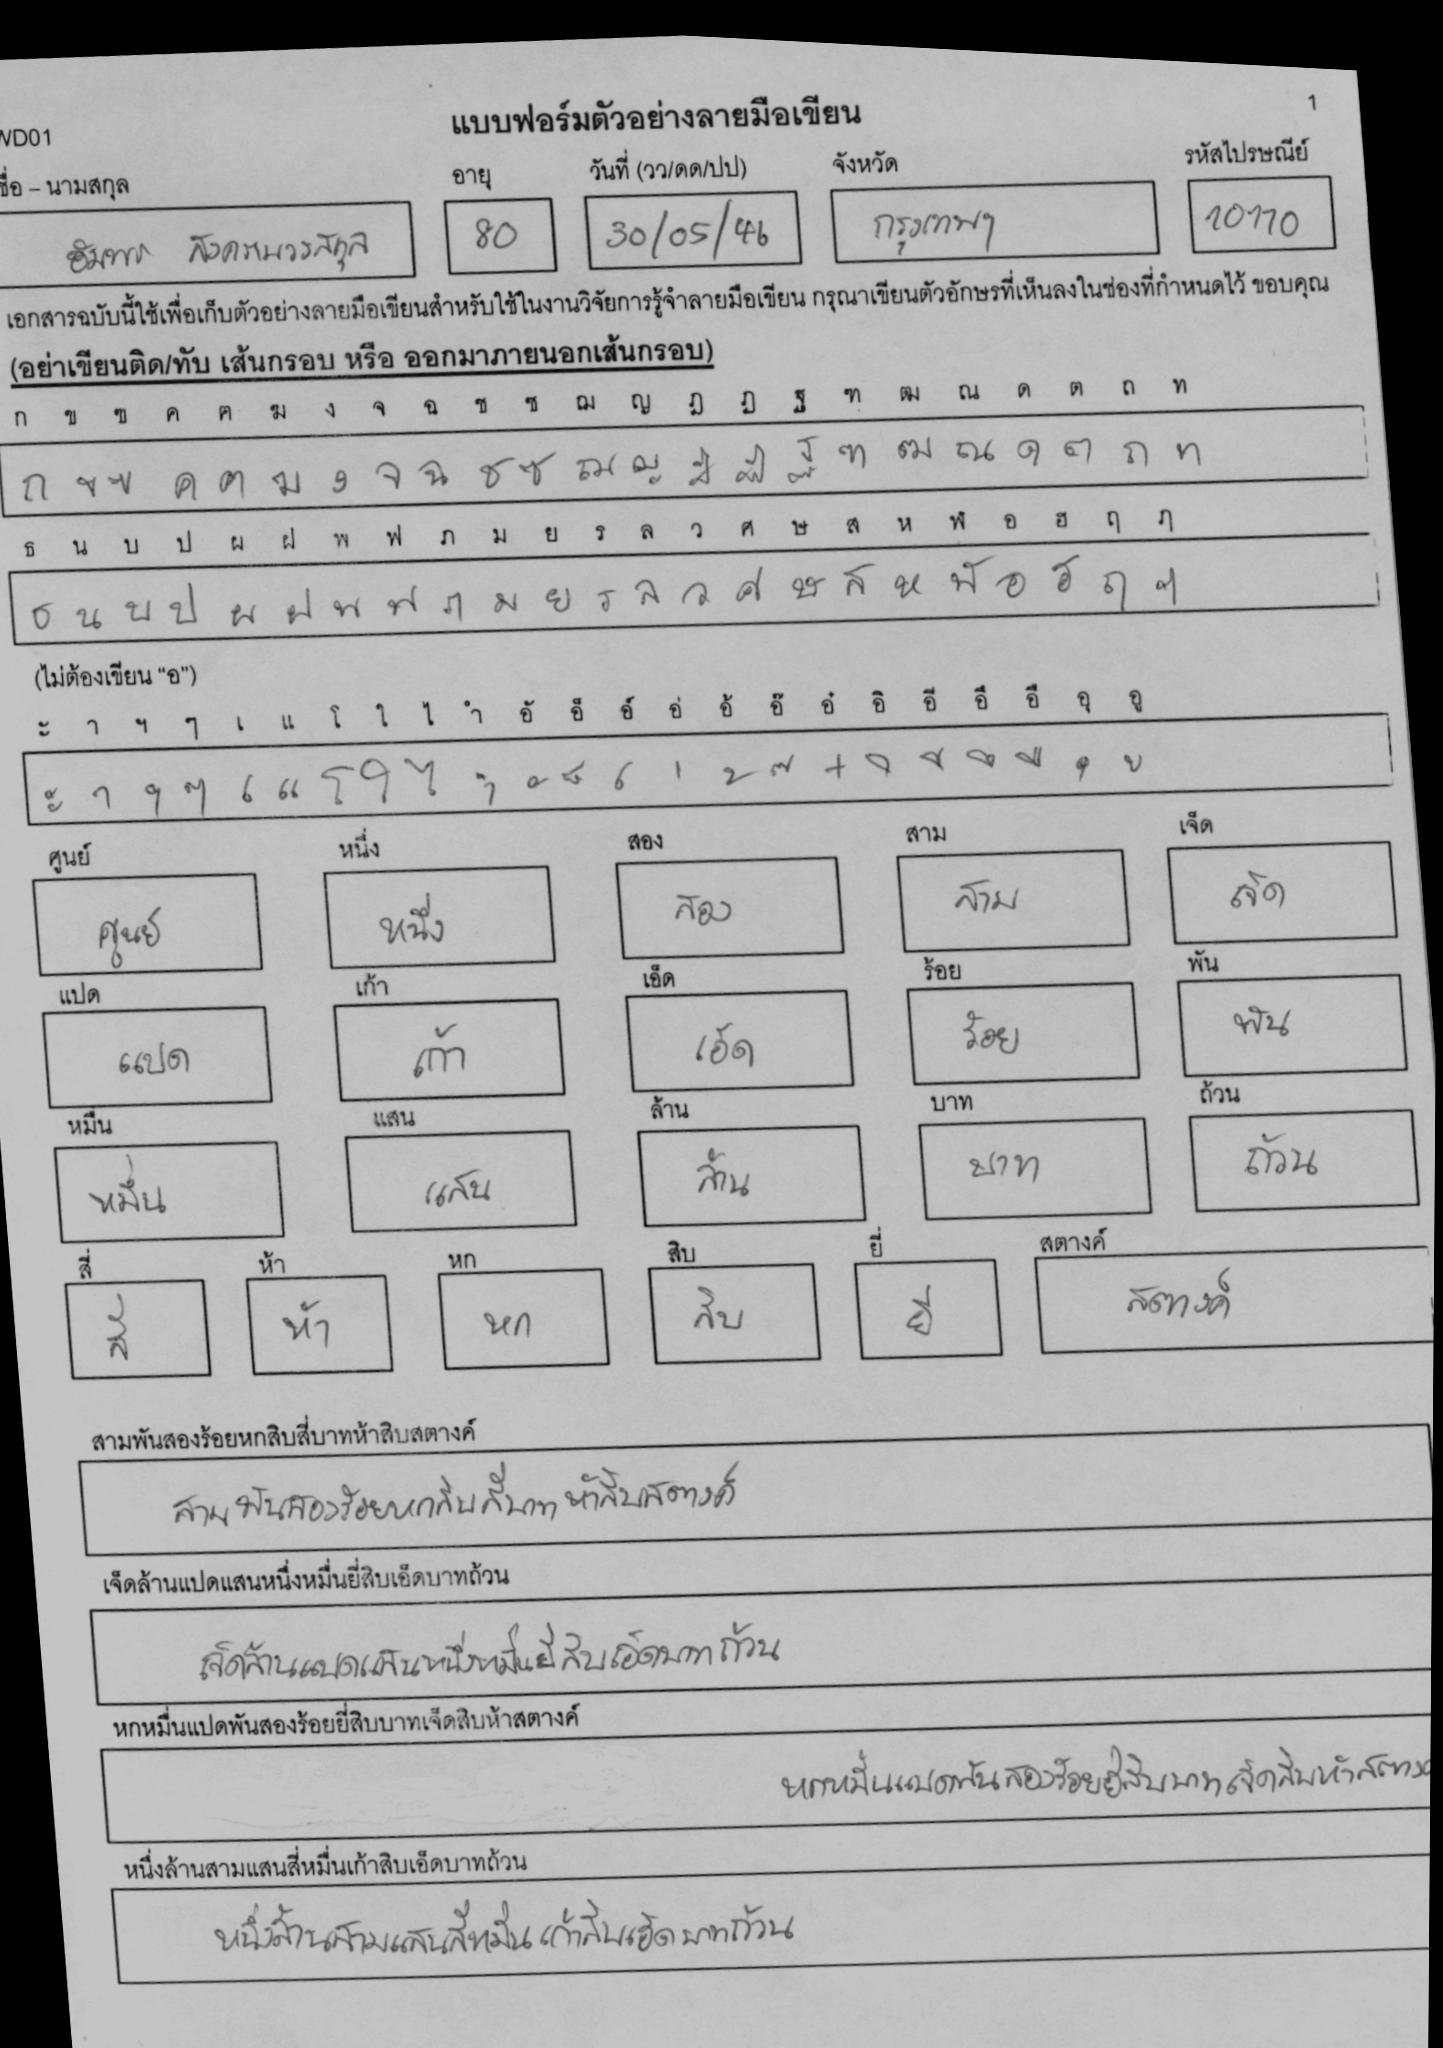 WD01 แบบฟอร์มตัวอย่างลายมือเขียน 1
ชื่อ – นามสกุล อายุ วันที่ (วว/ดด/ปป) จังหวัด รหัสไปรษณีย์
80 30/05/46 กรุงเทพฯ 10110
เอกสารฉบับนี้ใช้เพื่อเก็บตัวอย่างลายมือเขียนสำหรับใช้ในงานวิจัยการรู้จำลายมือเขียน กรุณาเขียนตัวอักษรที่เห็นลงในช่องที่กำหนดไว้ ขอบคุณ
(อย่าเขียนติด/ทับ เส้นกรอบ หรือ ออกมาภายนอกเส้นกรอบ)
ก ข ฃ ค ฅ ฆ ง จ ฉ ช ซ ฌ ญ ฎ ฏ ฐ ฑ ฒ ณ ด ต ถ ท
ก ข ฃ ค ฅ ฆ ง จ ฉ ช ซ ฌ ญ ฎ ฏ ฐ ฑ ฒ ณ ด ต ถ ท
ธ น บ ป ผ ฝ พ ฟ ภ ม ย ร ล ว ศ ษ ส ห ฬ อ ฮ ฤ ฦ
ธ น บ ป ผ ฝ พ ฟ ภ ม ย ร ล ว ศ ษ ส ห ฬ อ ฮ ฤ ฦ
(ไม่ต้องเขียน “อ”)
ะ า ฯ ๆ เ แ โ ใ ไ ำ อั อ็ อ์ อ่ อ้ อ๊ อ๋ อิ อี อึ อื อุ อู
ะ า ฯ ๆ เ แ โ ใ ไ ำ ั ็ ์ ่ ้ ๊ ๋ ิ ี ึ ื ุ ู
ศูนย์ หนึ่ง สอง สาม เจ็ด
ศูนย์ หนึ่ง สอง สาม เจ็ด
แปด เก้า เอ็ด ร้อย พัน
แปด เก้า เอ็ด ร้อย พัน
หมื่น แสน ล้าน บาท ถ้วน
หมื่น แสน ล้าน บาท ถ้วน
สี่ ห้า หก สิบ ยี่ สตางค์
สี่ ห้า หก สิบ ยี่ สตางค์
สามพันสองร้อยหกสิบสี่บาทห้าสิบสตางค์
สามพันสองร้อยหกสิบสี่บาทห้าสิบสตางค์
เจ็ดล้านแปดแสนหนึ่งหมื่นยี่สิบเอ็ดบาทถ้วน
เจ็ดล้านแปดแสนหนึ่งหมื่นยี่สิบเอ็ดบาทถ้วน
หกหมื่นแปดพันสองร้อยยี่สิบบาทเจ็ดสิบห้าสตางค์
หกหมื่นแปดพันสองร้อยยี่สิบบาทเจ็ดสิบห้าสตาง
หนึ่งล้านสามแสนสี่หมื่นเก้าสิบเอ็ดบาทถ้วน
หนึ่งล้านสามแสนสี่หมื่นเก้าสิบเอ็ดบาทถ้วน